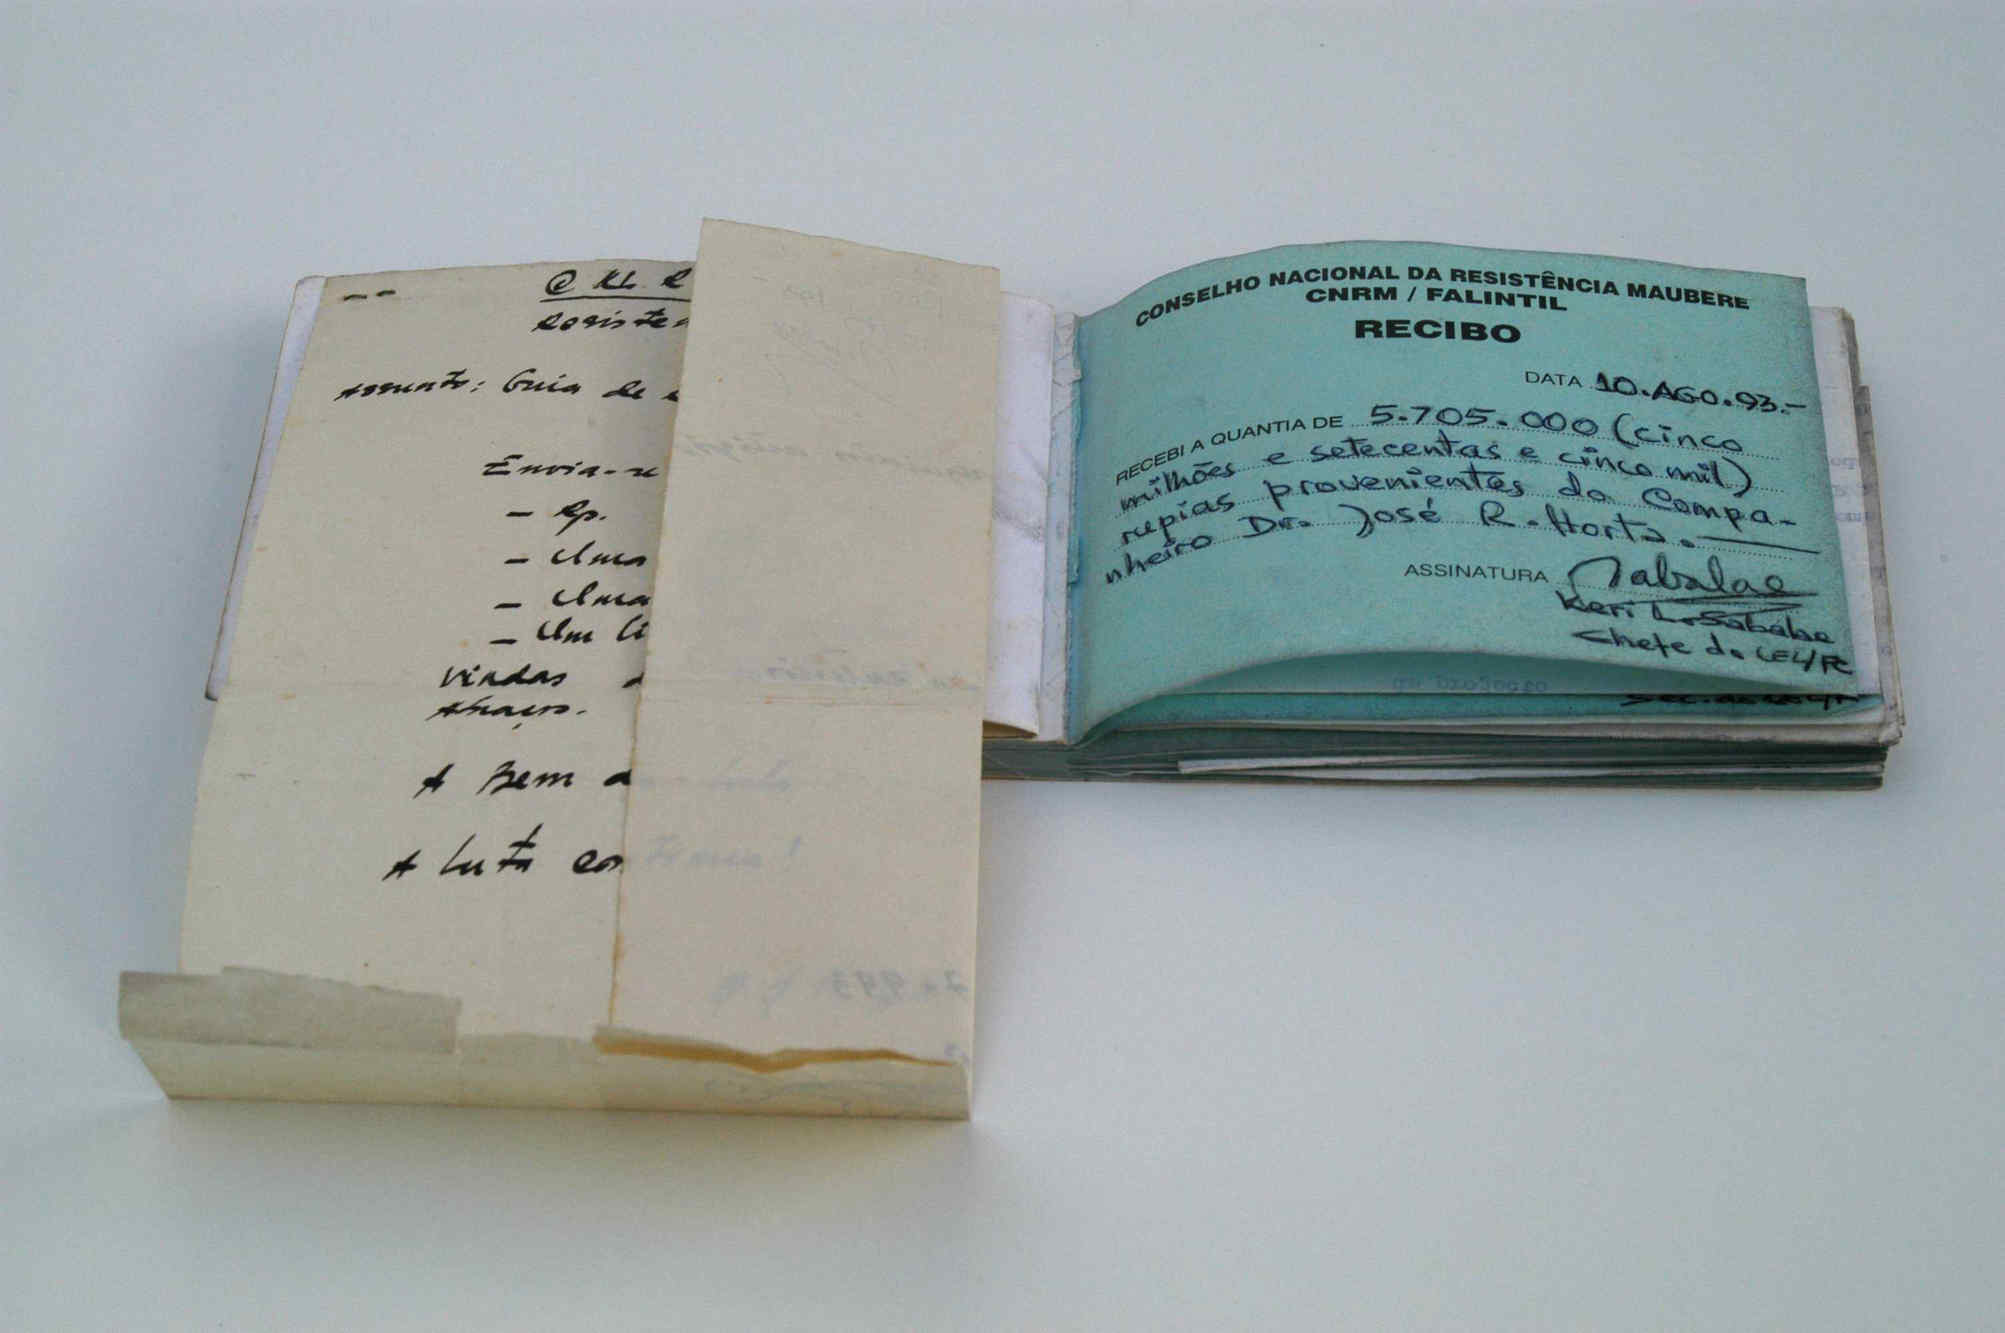 Assunto: Guia de
Envia-se
- Rp.
- Uma
- Uma
- Um li
vindas
Abraços.
A Bem d
A Luta con
CONSELHO NACIONAL DA RESISTÊNCIA MAUBERE
CNRM / FALINTIL
RECIBO
DATA 10.AGO.93.-
RECEBI A QUANTIA DE 5.705.000 (cinco
milhões e setecentas e cinco mil)
rupias provenientes do Compa-
nheiro Dr. José R. Horta.
ASSINATURA Sabalae
Keri L. Sabalae
Chefe do